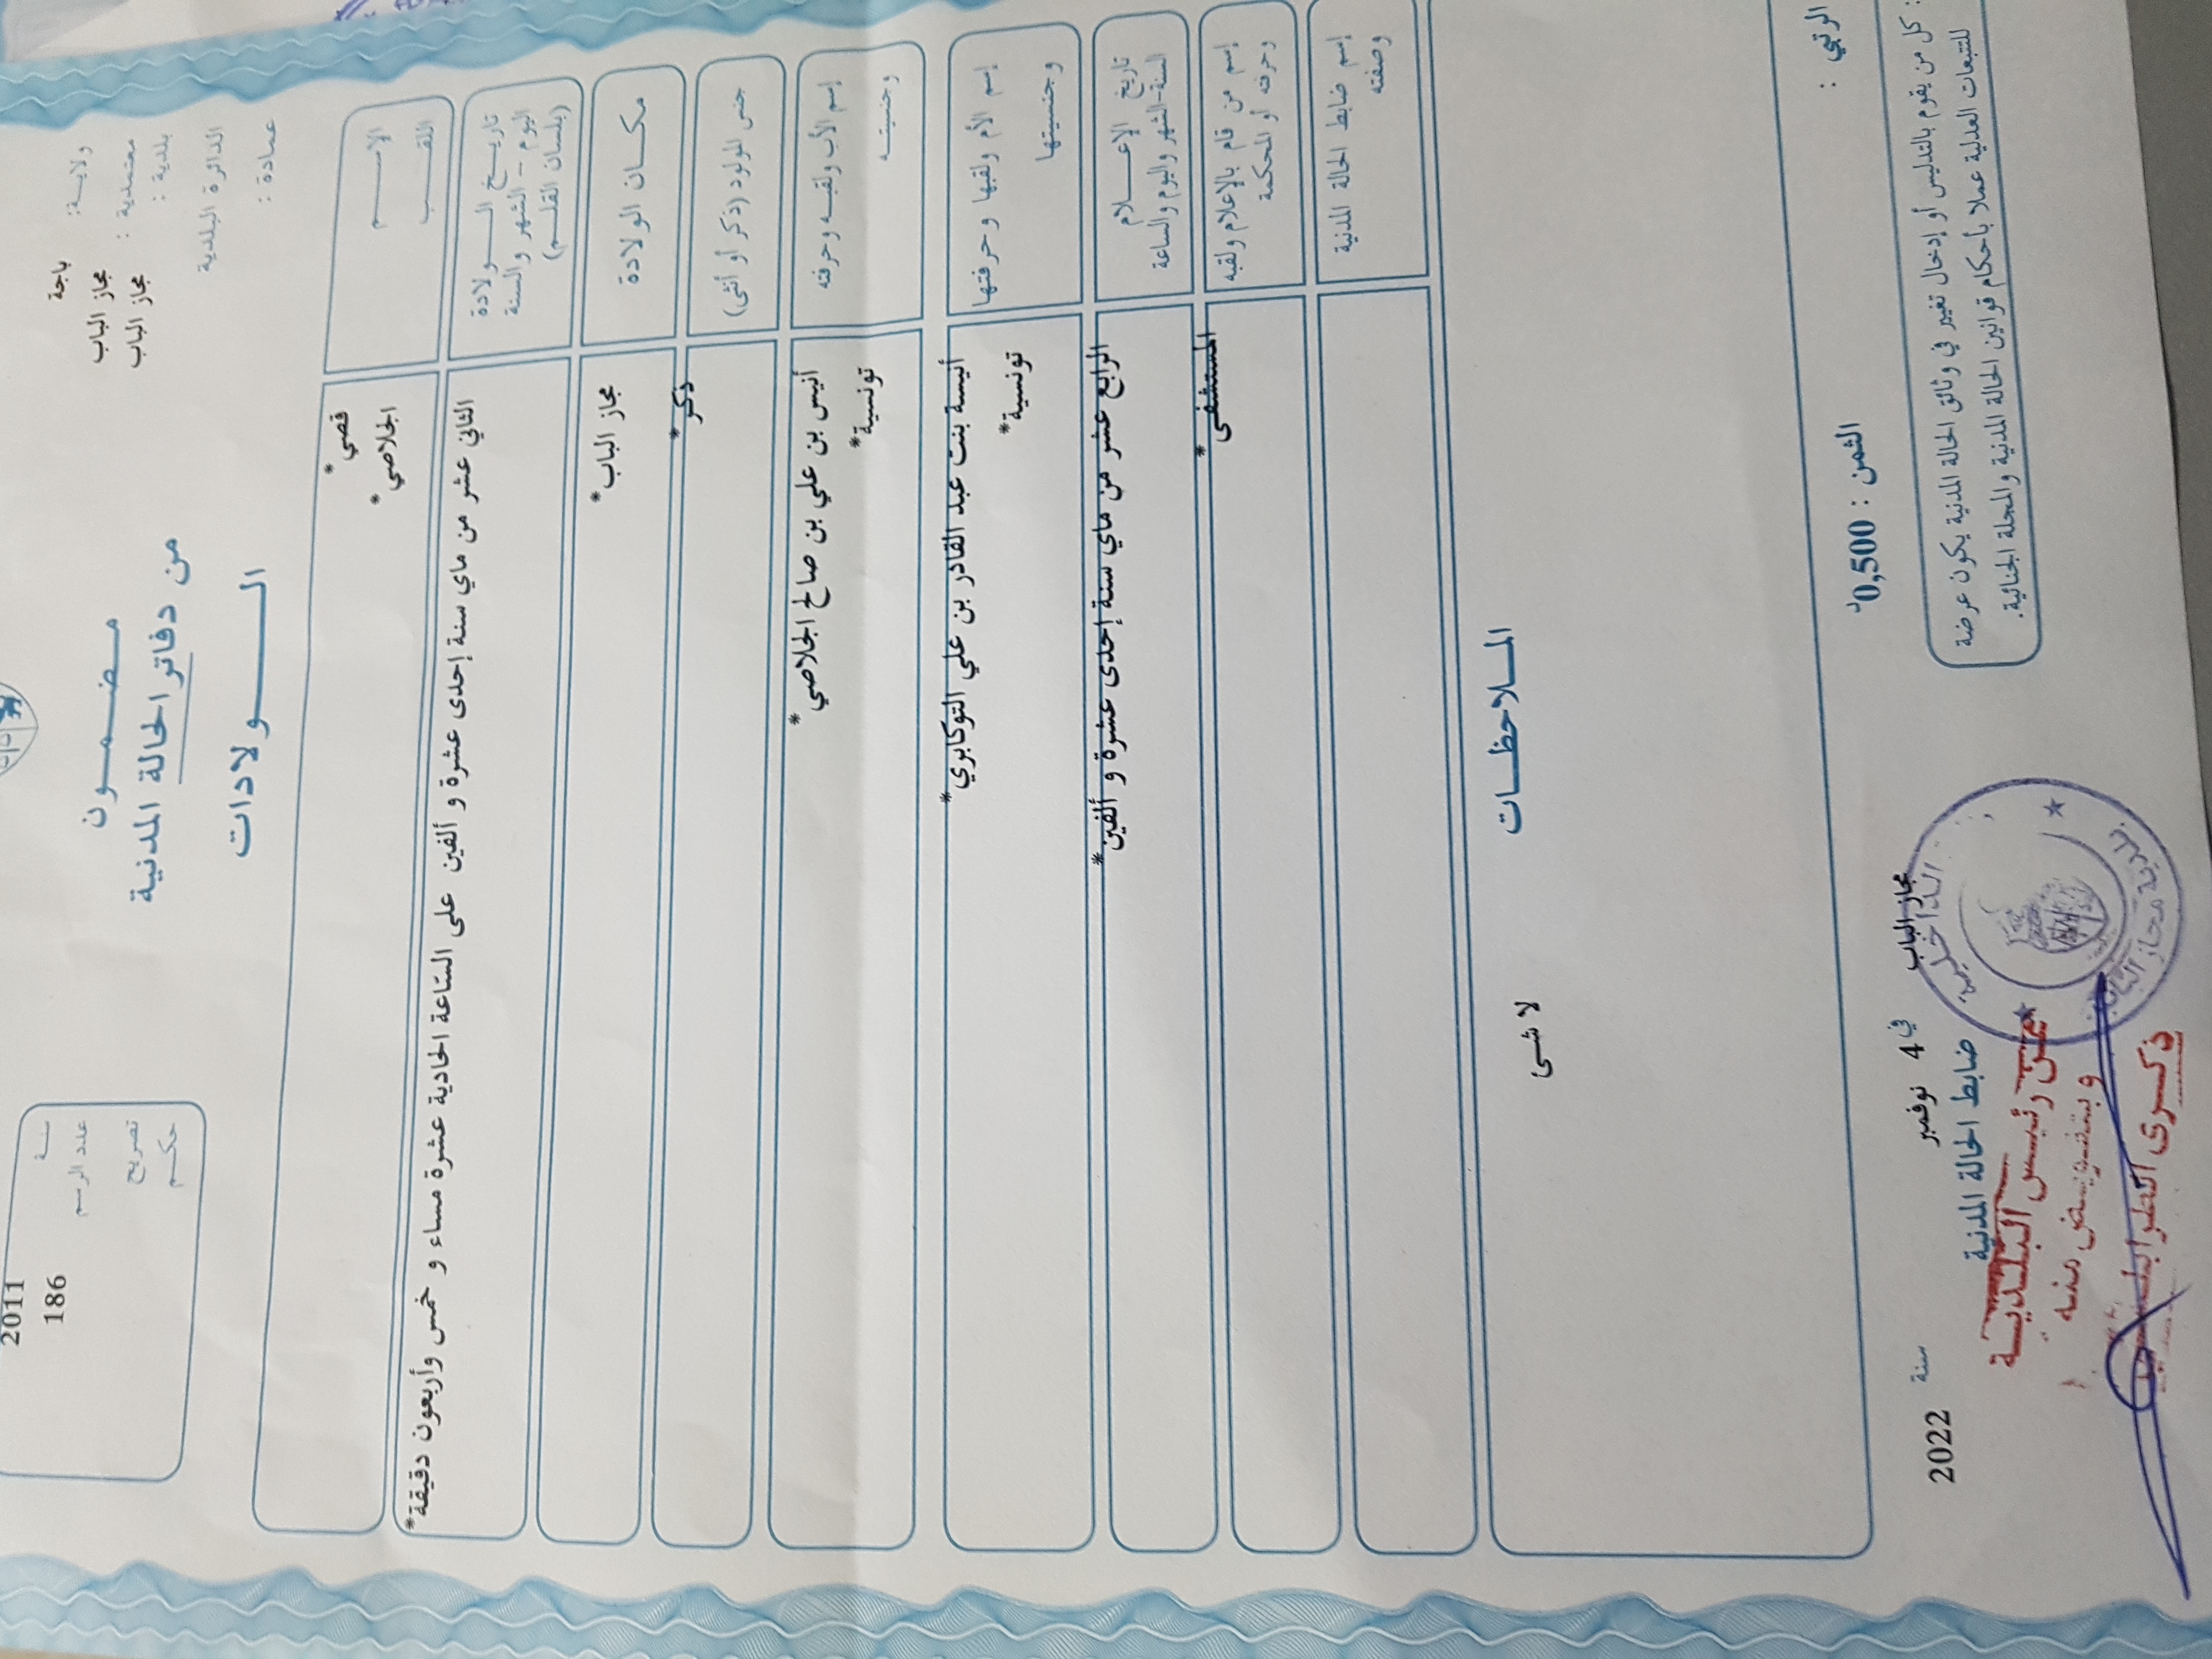 ولايـة: باجة
معتمدية : مجاز الباب
بلدية : مجاز الباب
الدائرة البلدية
عمادة :
سنـة 2011
عدد الرسم 186
تصريح
حكـم
مـضـمـون
من دفاتر الحالة المدنية
الـولادات
الإسـم قصي*
اللقـب الجلاصي*
تاريـخ الـولادة
اليوم – الشهر والسنة
(بلسان القلـم)
الثاني عشر من ماي سنة إحدى عشرة و ألفين على الساعة الحادية عشرة مساء و خمس وأربعون دقيقة*
مكـان الولادة مجاز الباب*
جنس المولود (ذكر أو أنثى) ذكر*
إسم الأب ولقبـه وحرفته أنيس بن علي بن صالح الجلاصي*
وجنسيتـه تونسية*
إسم الأم ولقبها وحرفتها أنيسة بنت عبد القادر بن علي التوكابري*
وجنسيتها تونسية*
تاريخ الإعـلام
السنة-الشهر واليوم والساعة
الرابع عشر من ماي سنة إحدى عشرة و ألفين*
إسم من قام بالإعلام ولقبه
وحرفته أو المحكمة
المستشفى*
إسم ضابط الحالة المدنية
وصفته
المـلاحظـات
لا شى
الرتبي :
الثمن : 0,500د
: كل من يقوم بالتدليس أو إدخال تغيير في وثائق الحالة المدنية يكون عرضة
للتتبعات العدلية عملا بأحكام قوانين الحالة المدنية والمجلة الجنائية.
مجاز الباب في 4 نوفمبر سنة 2022
ضابط الحالة المدنية
عن رئيس البلدية
وبتفويض منه
ذكرى الطرابلسي
الداخلية
بلدية مجاز الباب